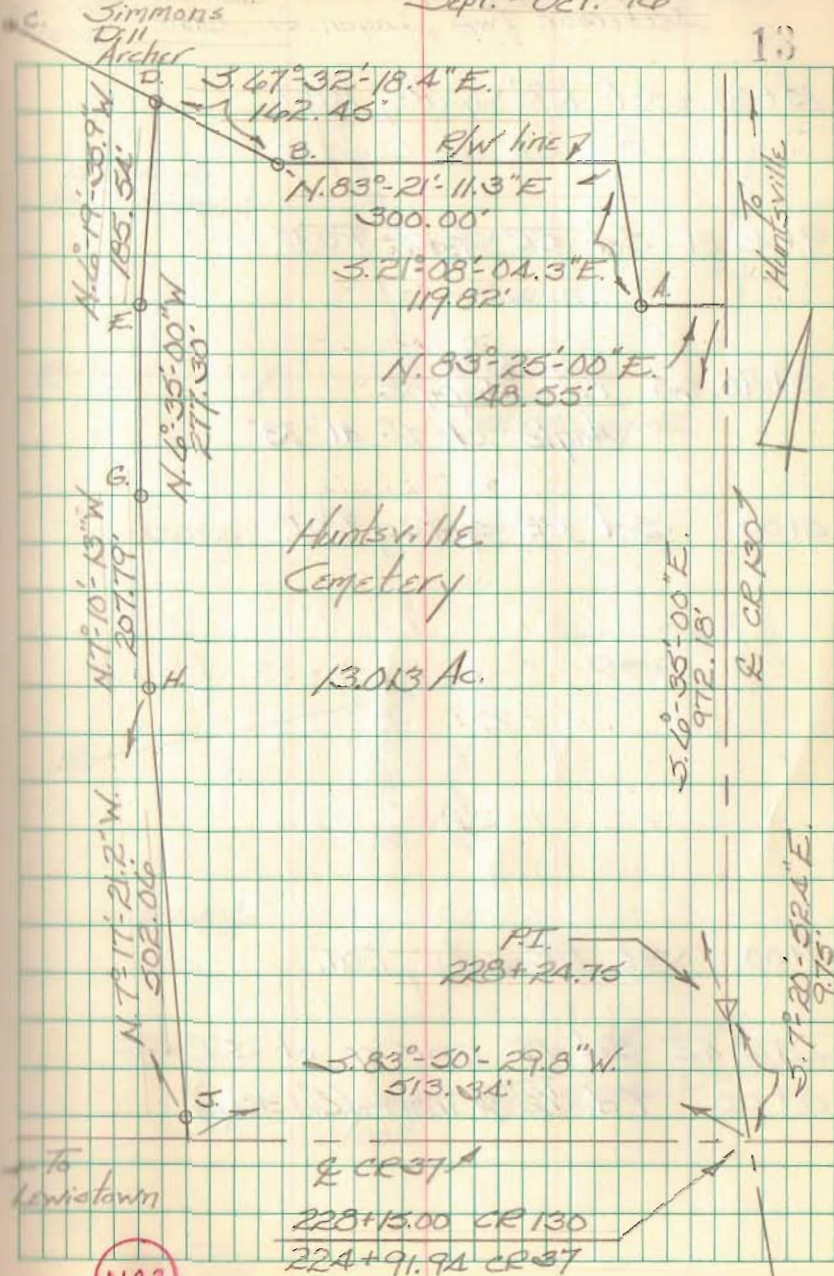 Sept. - Oct. '76
13
C.
Simmons
Dill
Archer
D.
S.67°-32'-18.4"E.
162.45'
B.
R/W line
N.83°-21'-11.3"E
300.00'
S.21°-08'-04.3"E.
119.82'
A.
N.83°-25'-00"E.
48.55'
To
Huntsville
N.6°-19'-35.9"W.
185.54'
E.
N.6°-35'-00"W
277.30'
G.
N.7°-10'-13"W
207.79'
H.
Huntsville
Cemetery
13.013 Ac.
S.6°-35'-00"E.
972.18'
℄ CR 130
N.7°-17'-21.2"W.
502.06'
P.I.
228+24.75
S.7°-20'-52.4"E.
9.75'
S.83°-50'-29.8"W.
513.34'
J.
To
Lewistown
℄ CR 37
228+15.00 CR 130
224+91.94 CR 37